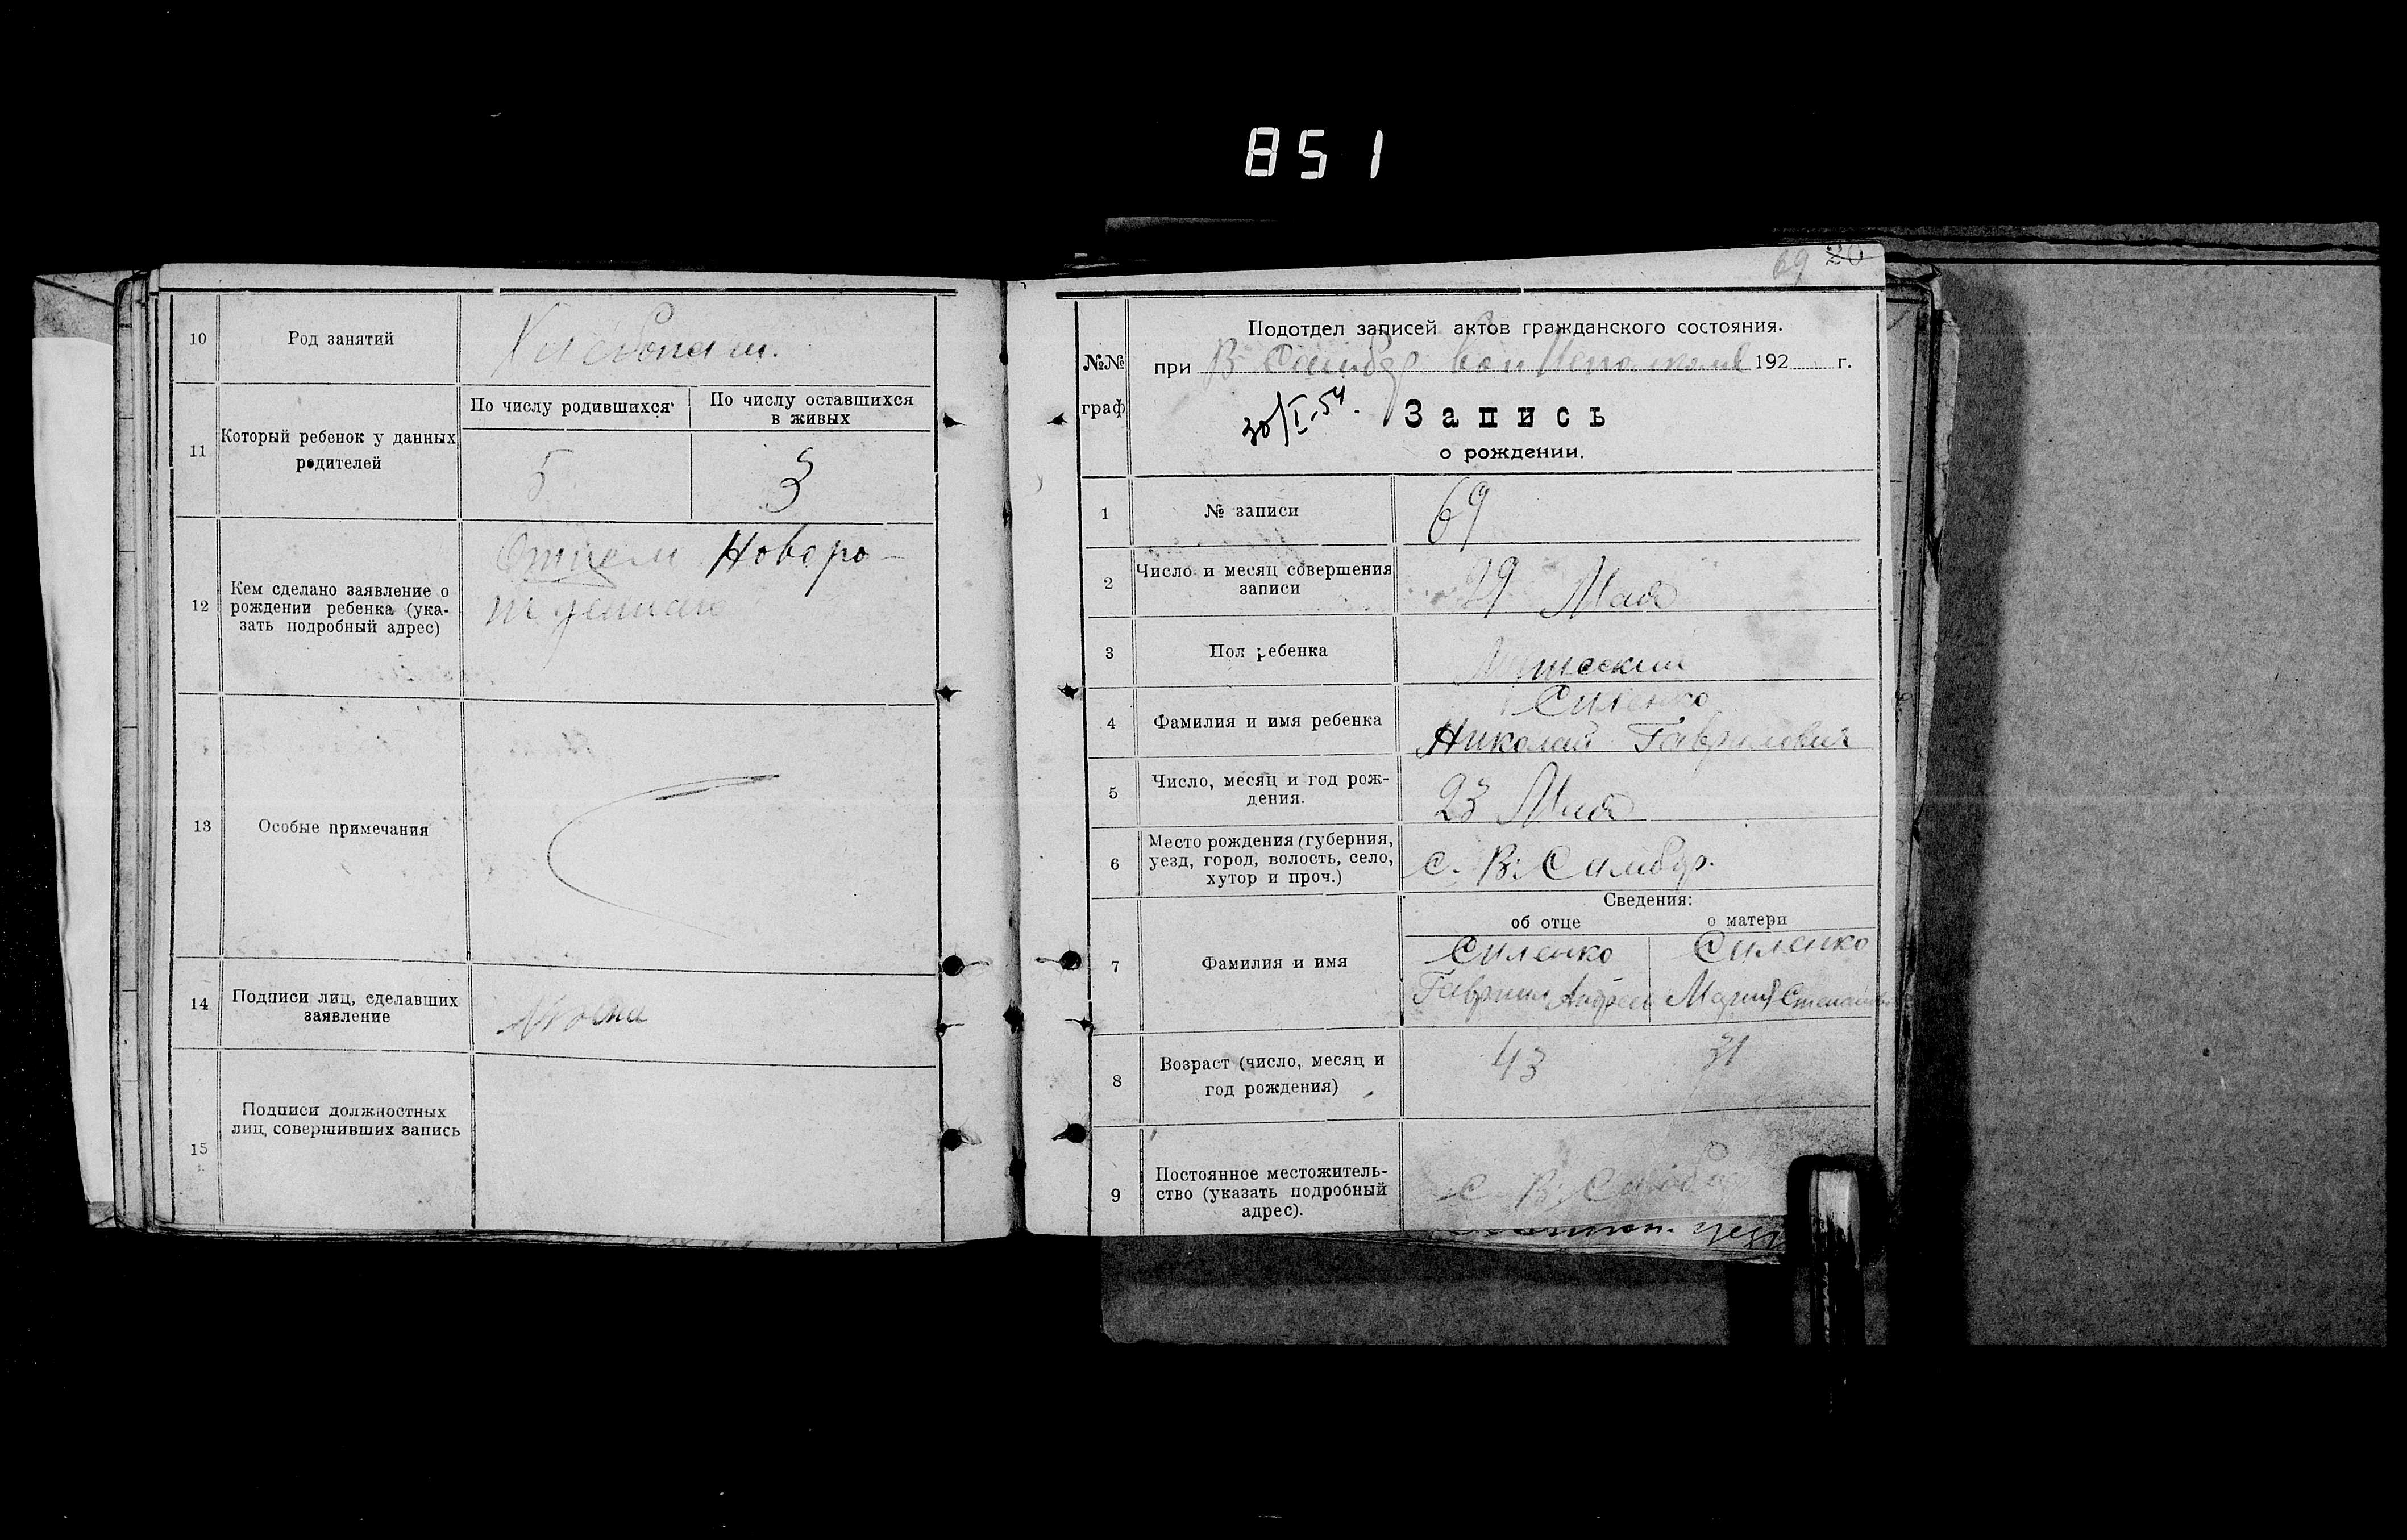 851
10
Род занятий
Хлебопаш.
11
Который ребенок у данных
родителей
По числу родившихся
По числу оставшихся
в живых
5
3
12
Кем сделано заявление о
рождении ребенка (ука-
зать подробный адрес)
Отцем Новоро-
жденаго
13
Особые примечания
14
Подписи лиц, сделавших
заявление
15
Подписи должностных
лиц, совершивших запись
69 20
№№
граф
Подотдел записей актов гражданского состояния.
при В Самбор. Вол Исполкоме 192 г.
30/I-54.
Запись
о рождении.
1
№ записи
69
2
Число и месяц совершения
записи
29 Мая
3
Пол ребенка
Мужеский
4
Фамилия и имя ребенка
Силенко
Николай Гаврилович
5
Число, месяц и год рож-
дения.
23 Мая
6
Место рождения (губерния,
уезд, город, волость, село,
хутор и проч.)
с. В. Самбор.
Сведения:
об отце
о матери
7
Фамилия и имя
Силенко
Гавриил Андреев
Силенко
Мария Степанова
8
Возраст (число, месяц и
год рождения)
43
31
9
Постоянное местожитель-
ство (указать подробный
адрес).
с В. Самбор